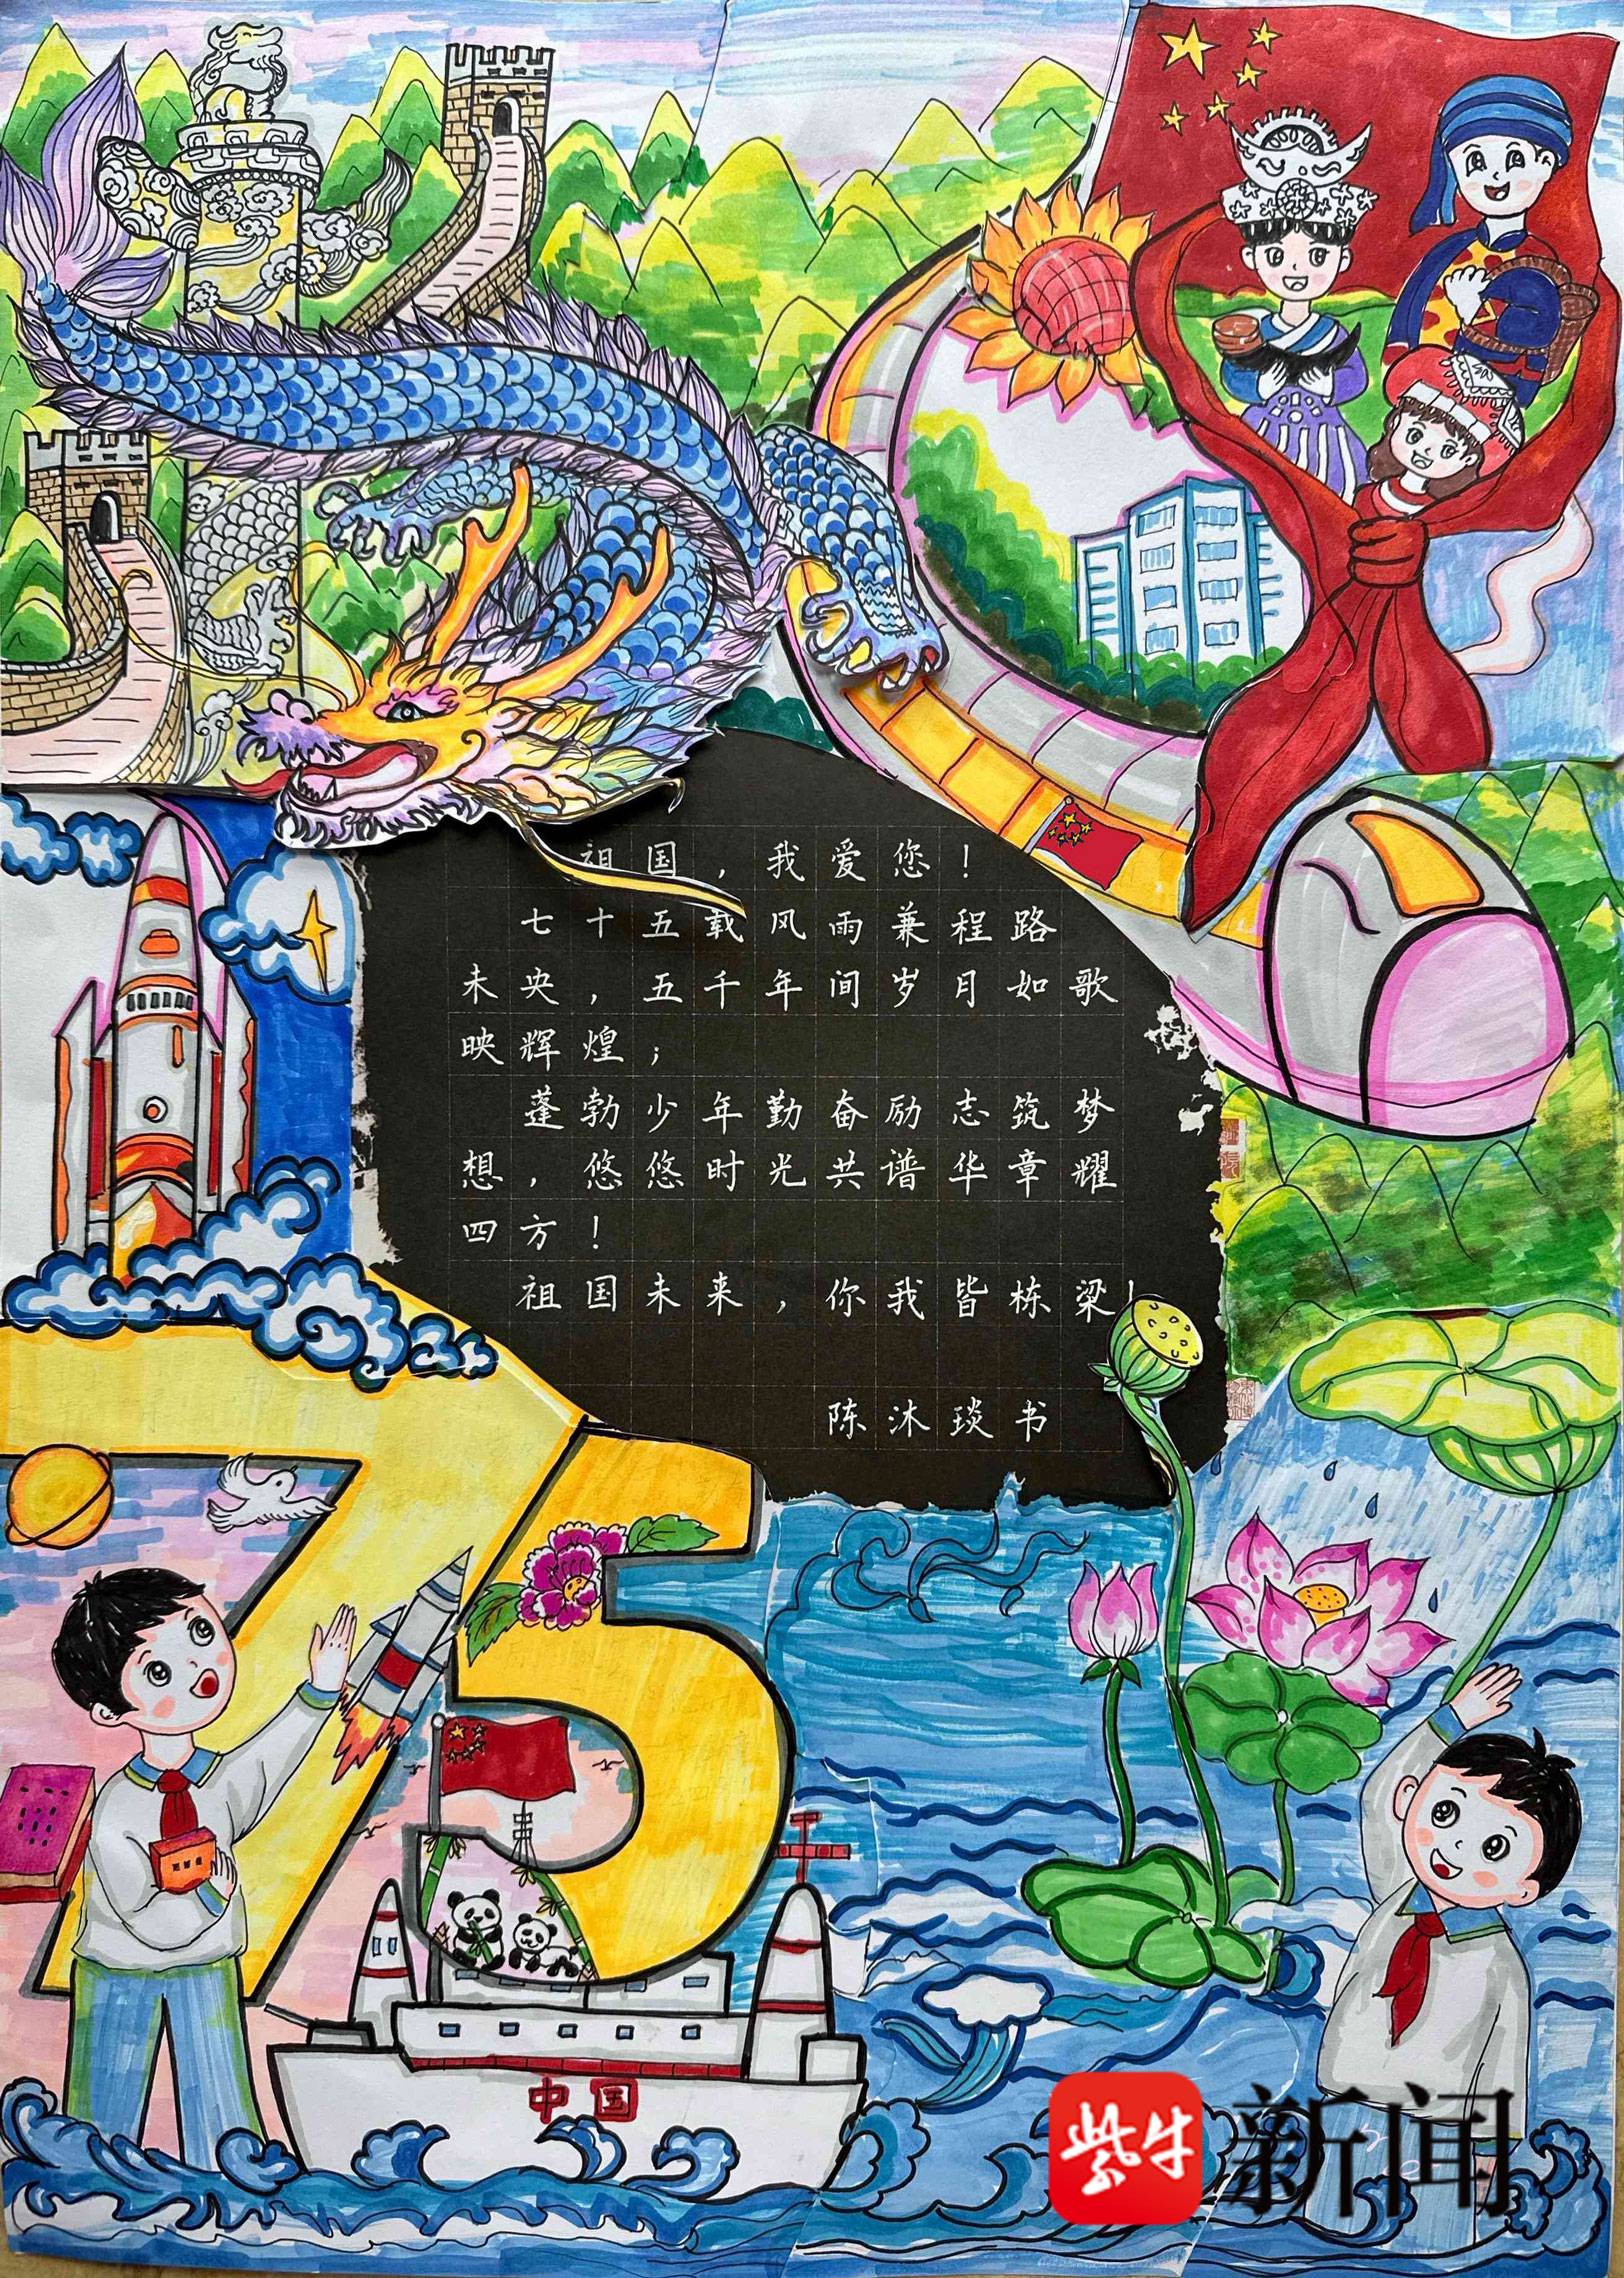 祖国，我爱您！
七十五载风雨兼程路
未央，五千年间岁月如歌
映辉煌；
蓬勃少年勤奋励志筑梦
想，悠悠时光共谱华章耀
四方！
祖国未来，你我皆栋梁！
陈沐琰书
75
中国
紫牛新闻